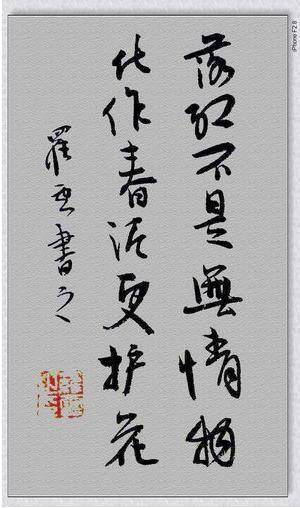 落红不是無情物
化作春泥更护花
書之
iPhone F2.8